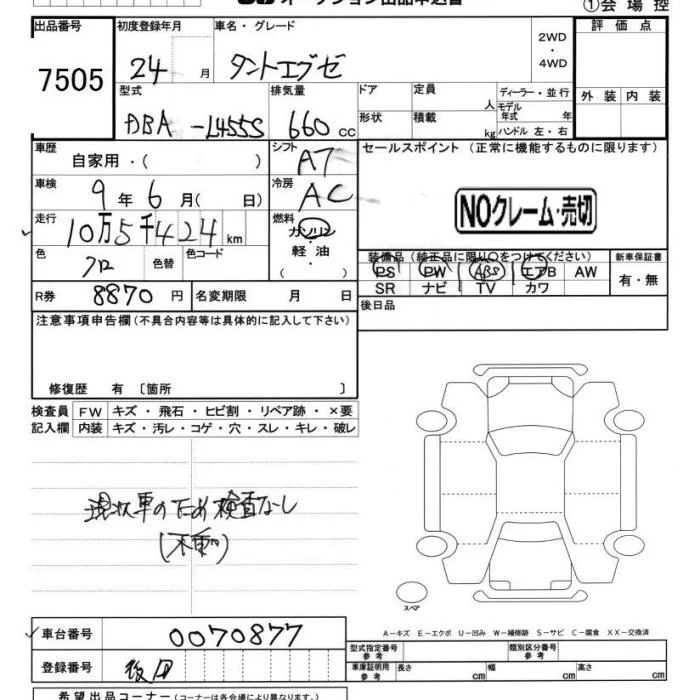 オークション出品申込書 ①会場控
出品番号 初度登録年月 車名・グレード 2WD・4WD 評価点
7505 24月 タントエグゼ
外装 内装
型式 排気量 ドア 定員 人 ディーラー・並行
DBA-L455S 660cc 形状 積載 kg モデル年式 年
ハンドル 左・右
車歴 自家用・( ) シフト AT セールスポイント (正常に機能するものに限ります)
車検 9年6月( 日) 冷房 AC NOクレーム・売切
走行 10万5千424km 燃料 ガソリン
軽油・( )
色 クロ 色替 色コード 装備品(純正品に限り○をつけてください) 新車保証書
PS PW ABS エアB AW 有・無
SR ナビ TV カワ
R券 8870円 名変期限 月 日 後日品
注意事項申告欄(不具合内容等は具体的に記入して下さい)
修復歴 有〔箇所 〕
検査員 FW キズ・飛石・ヒビ割・リペア跡・×要
記入欄 内装 キズ・汚レ・コゲ・穴・スレ・キレ・破レ
現状車のため検査なし
(不動)
スペア
車台番号 0070877
A-キズ E-エクボ U-凹み W-補修跡 S-サビ C-腐食 XX-交換済
登録番号 後日
型式指定番号参考 類別区分番号
車庫証明用参考 長さ cm 幅 cm 高さ cm
希望出品コーナー(コーナーは各会場により異なります)